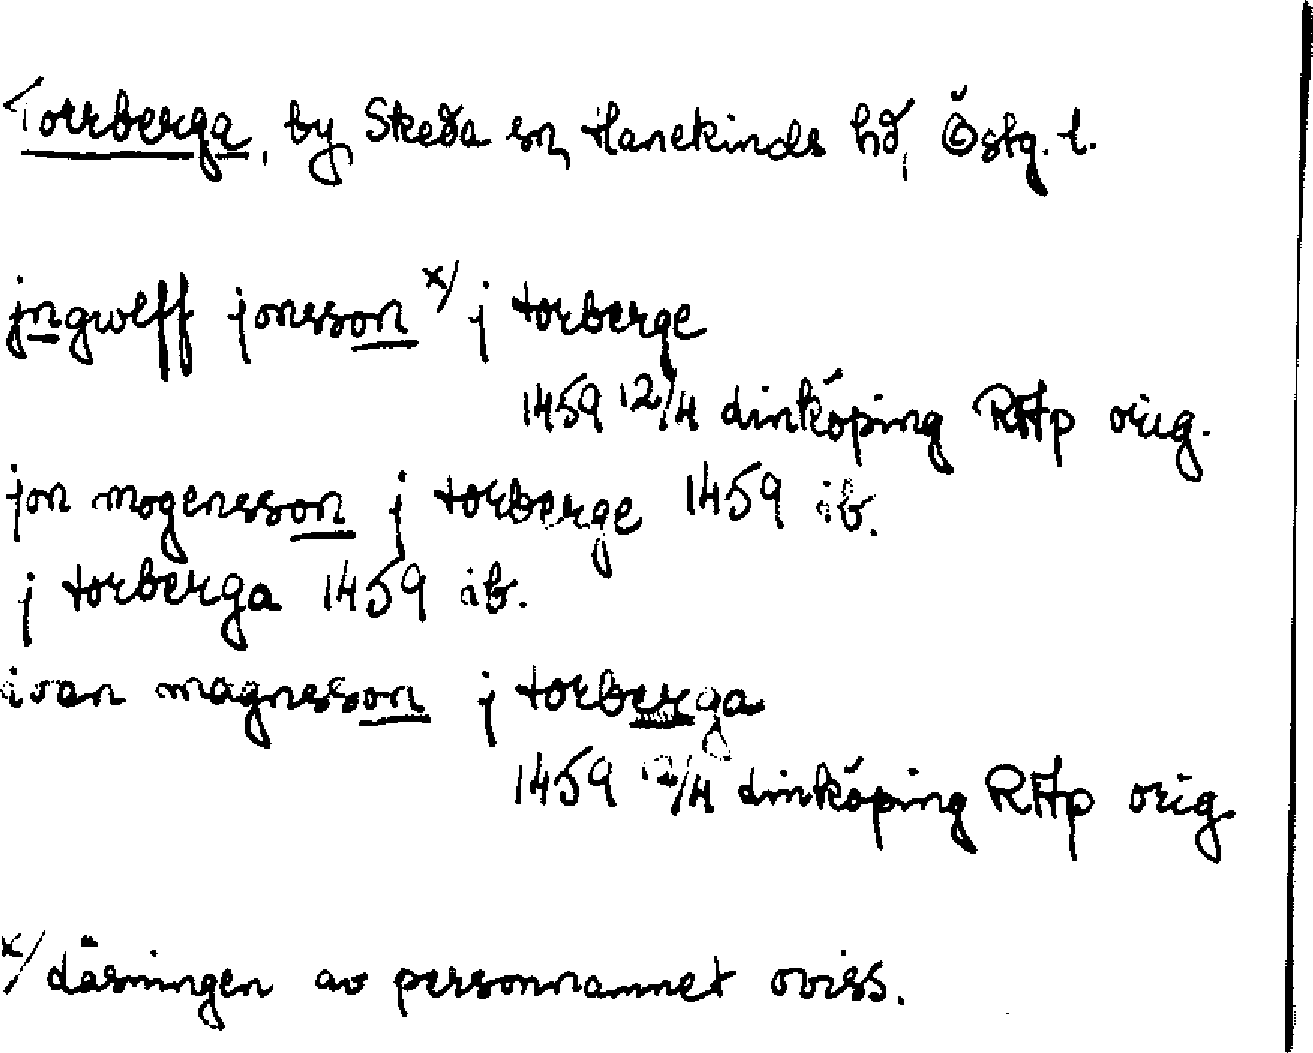 Torrberga, by Skeda sn, Hanekinds hd, Östg. l.
jngwelff jonsson x/ j torberge
1459 12/4 Linköping RAp orig.
jon mogensson j torberge 1459 ib.
j torberga 1459 ib.
ivan magnesson j torberga
1459 12/4 Linköping RAp orig.
x/ Läsningen av personnamnet oviss.